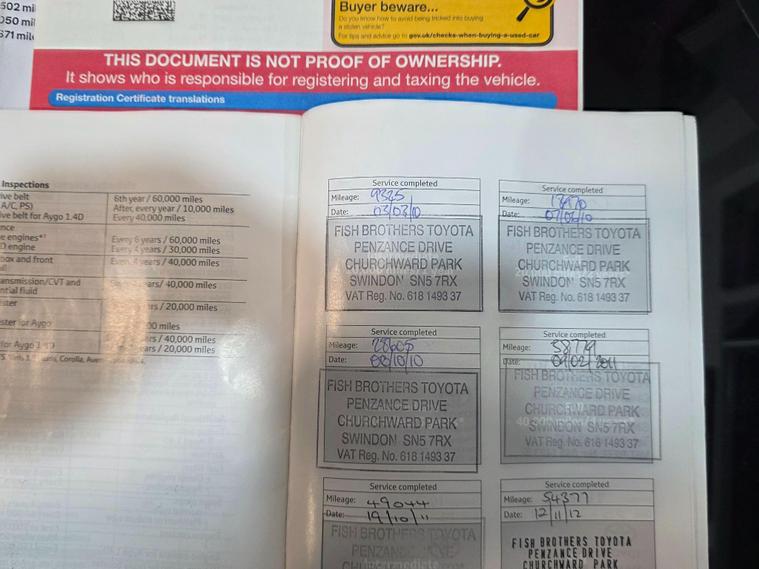 502 mil
050 mil
671 mile
Buyer beware...
Do you know how to avoid being tricked into buying
a stolen vehicle?
For tips and advice go to gov.uk/checks-when-buying-a-used-car
THIS DOCUMENT IS NOT PROOF OF OWNERSHIP.
It shows who is responsible for registering and taxing the vehicle.
Registration Certificate translations
Inspections
ive belt
A/C, PS)
ive belt for Aygo 1.4D
6th year / 60,000 miles
After, every year / 10,000 miles
Every 40,000 miles
nce
e engines*
D engine
Every 6 years / 60,000 miles
Every 4 years / 30,000 miles
box and front
years / 40,000 miles
ansmission/CVT and
ntial fluid
years / 40,000 miles
years / 20,000 miles
for Aygo
miles
for Aygo
years / 40,000 miles
years / 20,000 miles
Corolla,
Service completed
Mileage: 9325
Date: 03/03/10
FISH BROTHERS TOYOTA
PENZANCE DRIVE
CHURCHWARD PARK
SWINDON SN5 7RX
VAT Reg. No. 618 1493 37
Service completed
Mileage:
Date:
FISH BROTHERS TOYOTA
PENZANCE DRIVE
CHURCHWARD PARK
SWINDON SN5 7RX
VAT Reg. No. 618 1493 37
Service completed
Mileage: 28605
Date: 08/10/10
FISH BROTHERS TOYOTA
PENZANCE DRIVE
CHURCHWARD PARK
SWINDON SN5 7RX
VAT Reg. No. 618 1493 37
Service completed
Mileage: 38779
Date: 09/02/2011
FISH BROTHERS TOYOTA
PENZANCE DRIVE
CHURCHWARD PARK
SWINDON SN5 7RX
VAT Reg. No. 618 1493 37
Service completed
Mileage: 49044
Date: 19/10/11
FISH BROTHERS TOYOTA
PENZANCE DRIVE
Service completed
Mileage: 54377
Date: 12/11/12
FISH BROTHERS TOYOTA
PENZANCE DRIVE
CHURCHWARD PARK